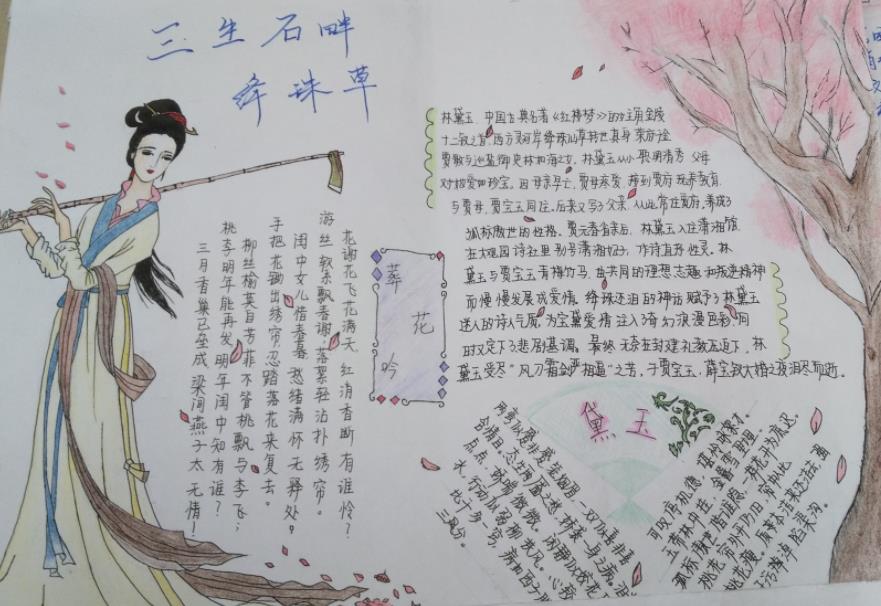 三生石畔
绛珠草
葬花吟
花谢花飞花满天，红消香断有谁怜？
游丝软系飘春谢，落絮轻沾扑绣帘。
闺中女儿惜春暮，愁绪满怀无释处。
手把花锄出绣帘，忍踏落花来复去。
柳丝榆荚自芳菲，不管桃飘与李飞；
桃李明年能再发，明年闺中知有谁？
三月香巢已垒成，梁间燕子太无情！
林黛玉，中国古典名著《红楼梦》的女主角，金陵
十二钗之首，西方灵河岸绛珠仙草转世真身，荣府千金
贾敏与巡盐御史林如海之女，林黛玉从小聪明清秀，父母
对她爱如珍宝。因母亲早亡，贾母疼爱，接到贾府抚养教育
与贾母，贾宝玉同住。后来又写了父亲，从此常住贾府，养成了
孤标傲世的性格。贾元春省亲后，林黛玉入住潇湘馆
在大观园诗社里别号潇湘妃子，作诗直抒性灵。林
黛玉与贾宝玉青梅竹马，由共同的理想志趣和叛逆精神
而慢慢发展成爱情。绛珠还泪的神话赋予了林黛玉
迷人的诗人气质，为宝黛爱情注入了奇幻浪漫色彩，同
时又定下了悲剧基调。最终无奈在封建礼教压迫下，林
黛玉受尽“风刀霜剑严相逼”之苦，于贾宝玉，薛宝钗大婚之夜泪尽而逝。
黛玉
两弯似蹙非蹙罥烟眉，一双似喜非喜
含情目。态生两靥之愁，娇袭一身之病。泪
点点，娇喘微微。闲静似姣花
水，行动似弱柳扶风。心较
比干多一窍，病如西子
三分。
可叹停机德，堪怜咏絮才。
玉带林中挂，金簪雪里埋。